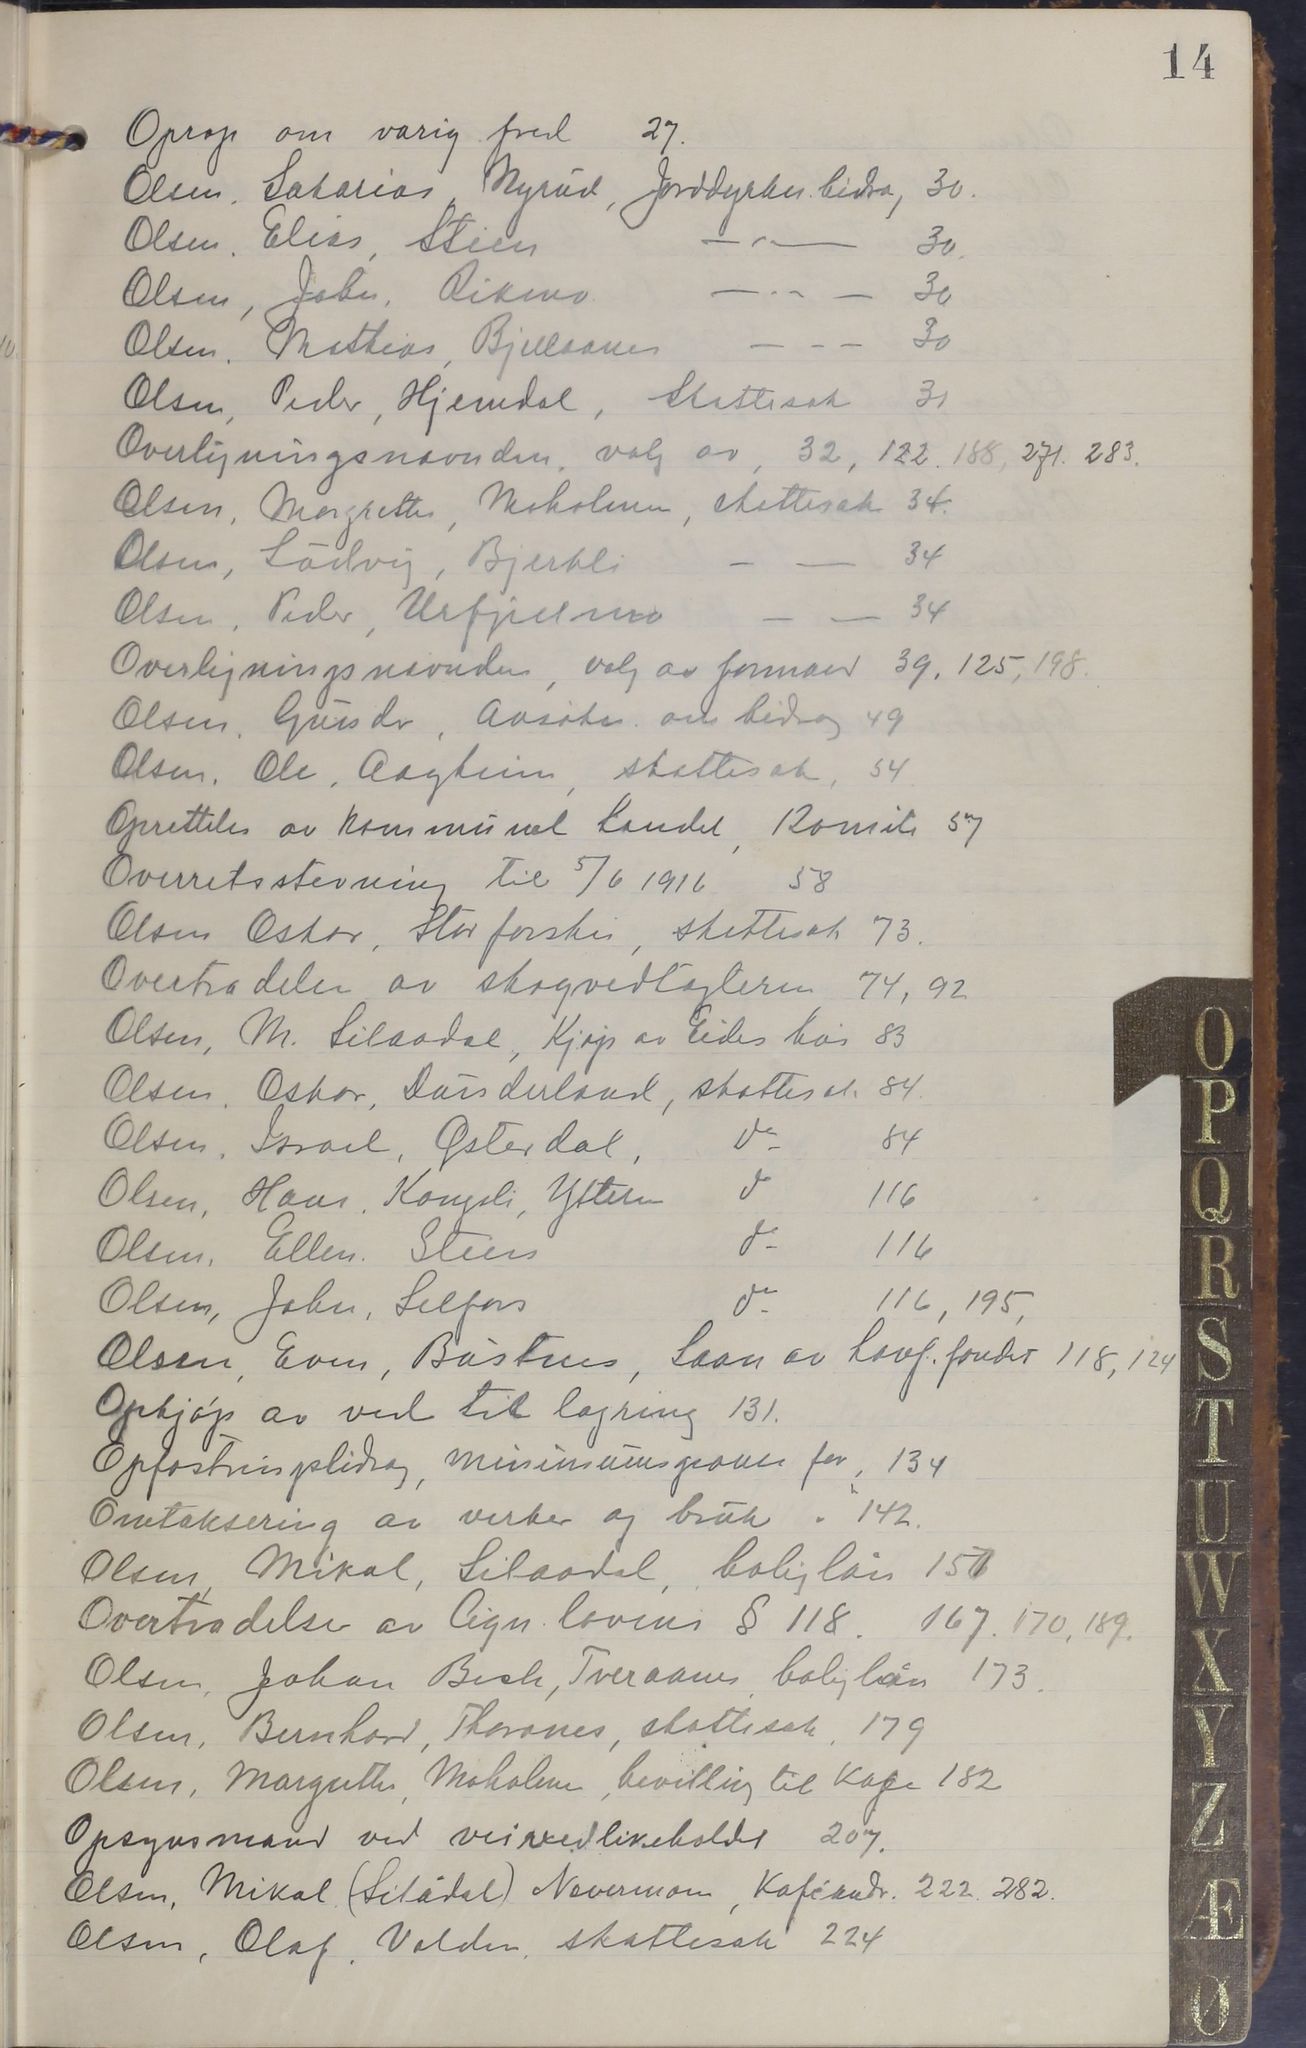 14
Oprop om varig fred 27.
Olsen, Sakarias, Nyrud, Jorddyrkn. bidrag, 30.
Olsen, Elias, Steen —"— 30.
Olsen, John, —"— 30
Olsen, Mathias, Bjellaanes — - — 30
Olsen, Peder, Hjemdal, Skattesak 31
Overligningsnevnden, valg av, 32, 122. 188, 271. 283.
Olsen, Margrethe, Moholmen, skattesak 34.
Olsen, Ludvig, Bjerkli — — 34
Olsen, Peder, Urfjellmo — — 34
Overligningsnevnden, valg av formand 39, 125, 198.
Olsen, Gunder, Ansøkn. om bidrag 49
Olsen, Ole, Aagheim, skattesak, 54
Oprettelse av kommunal handel, Komite 57
Overretsstevning til 5/6 1916 58
Olsen Oskar, Storforshei, skattesak 73.
Overtrædelse av skogvedtægterne 74, 92
Olsen, M. Silaadal, Kjøp av Eides hus 83
Olsen, Oskar, Dunderland, skattesak 84.
Olsen, Israel, Østerdal, do 84
Olsen, Hans, Kongsli, Ytteren do 116
Olsen, Ellen. Steen do 116
Olsen, John, Selfors do 116, 195,
Olsen, Even, Båstnes, Laan av havf. fondet 118, 124
Opkjøp av ved til lagring 131.
Opfostringsbidrag, minimumsgrænse for, 134
Omtaksering av verker og bruk " 142.
Olsen, Mikal, Silaadal, boliglån 151
Overtrædelse av lign. lovens § 118. 167. 170, 189.
Olsen, Johan Bech, Tveraanes, boliglån 173.
Olsen, Bernhard, Thoranes, skattesak, 179
Olsen, Margrethe, Moholmen, bevilling til Kafe 182
Opsynsmand ved veivedlikeholdet 207.
Olsen, Mikal (Silådal) Nevermoen, Kaféandr. 222. 282.
Olsen, Olaf, Volden, skattesak 224
O
P
Q
R
S
T
U
W
X
Y
Z
Æ
Ø